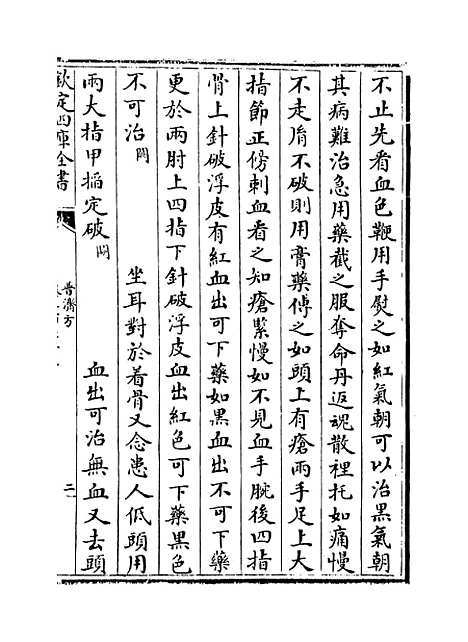 不止先看血色鞭用手熨之如紅氣朝可以治黑氣朝
其病難治急用藥截之服奪命丹返魂散裡托如痛慢
不走脂不破則用膏藥傅之如頭上有瘡兩手足上大
指節正傍刺血看之知瘡緊慢如不見血手腕後四指
骨上針破浮皮有紅血出可下藥如黑血出不可下藥
更於兩肘上四指下針破浮皮血出紅色可下藥黑色
不可治闕　坐耳對於着骨又念患人低頭用
兩大指甲搯定破闕　血出可治無血又去頭
欽定四庫全書
普濟方
二